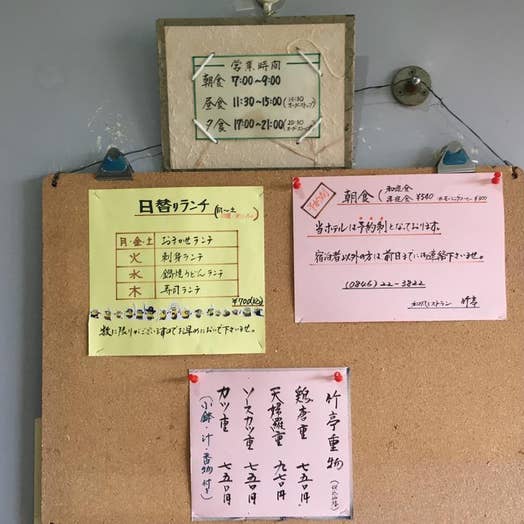 営業時間
朝食 7:00〜9:00
昼食 11:30〜15:00
夕食 17:00〜21:00
日替りランチ (月〜土
月・金・土 おまかせランチ
火 刺身ランチ
水 鍋焼うどんランチ
木 寿司ランチ
¥700(込)
数に限りがございますのでお早めにおいで下さいませ。
朝食 (和定食
洋定食 ¥540
当ホテルは予約制となっております。
宿泊者以外の方は前日までにご連絡下さいませ。
(0846)22-3822
和风レストラン 竹亭
竹亭重物
鶏唐重 七五〇円
天婦羅重 九七〇円
ソースカツ重 七五〇円
カツ重 七五〇円
(小鉢・汁・香物付き)